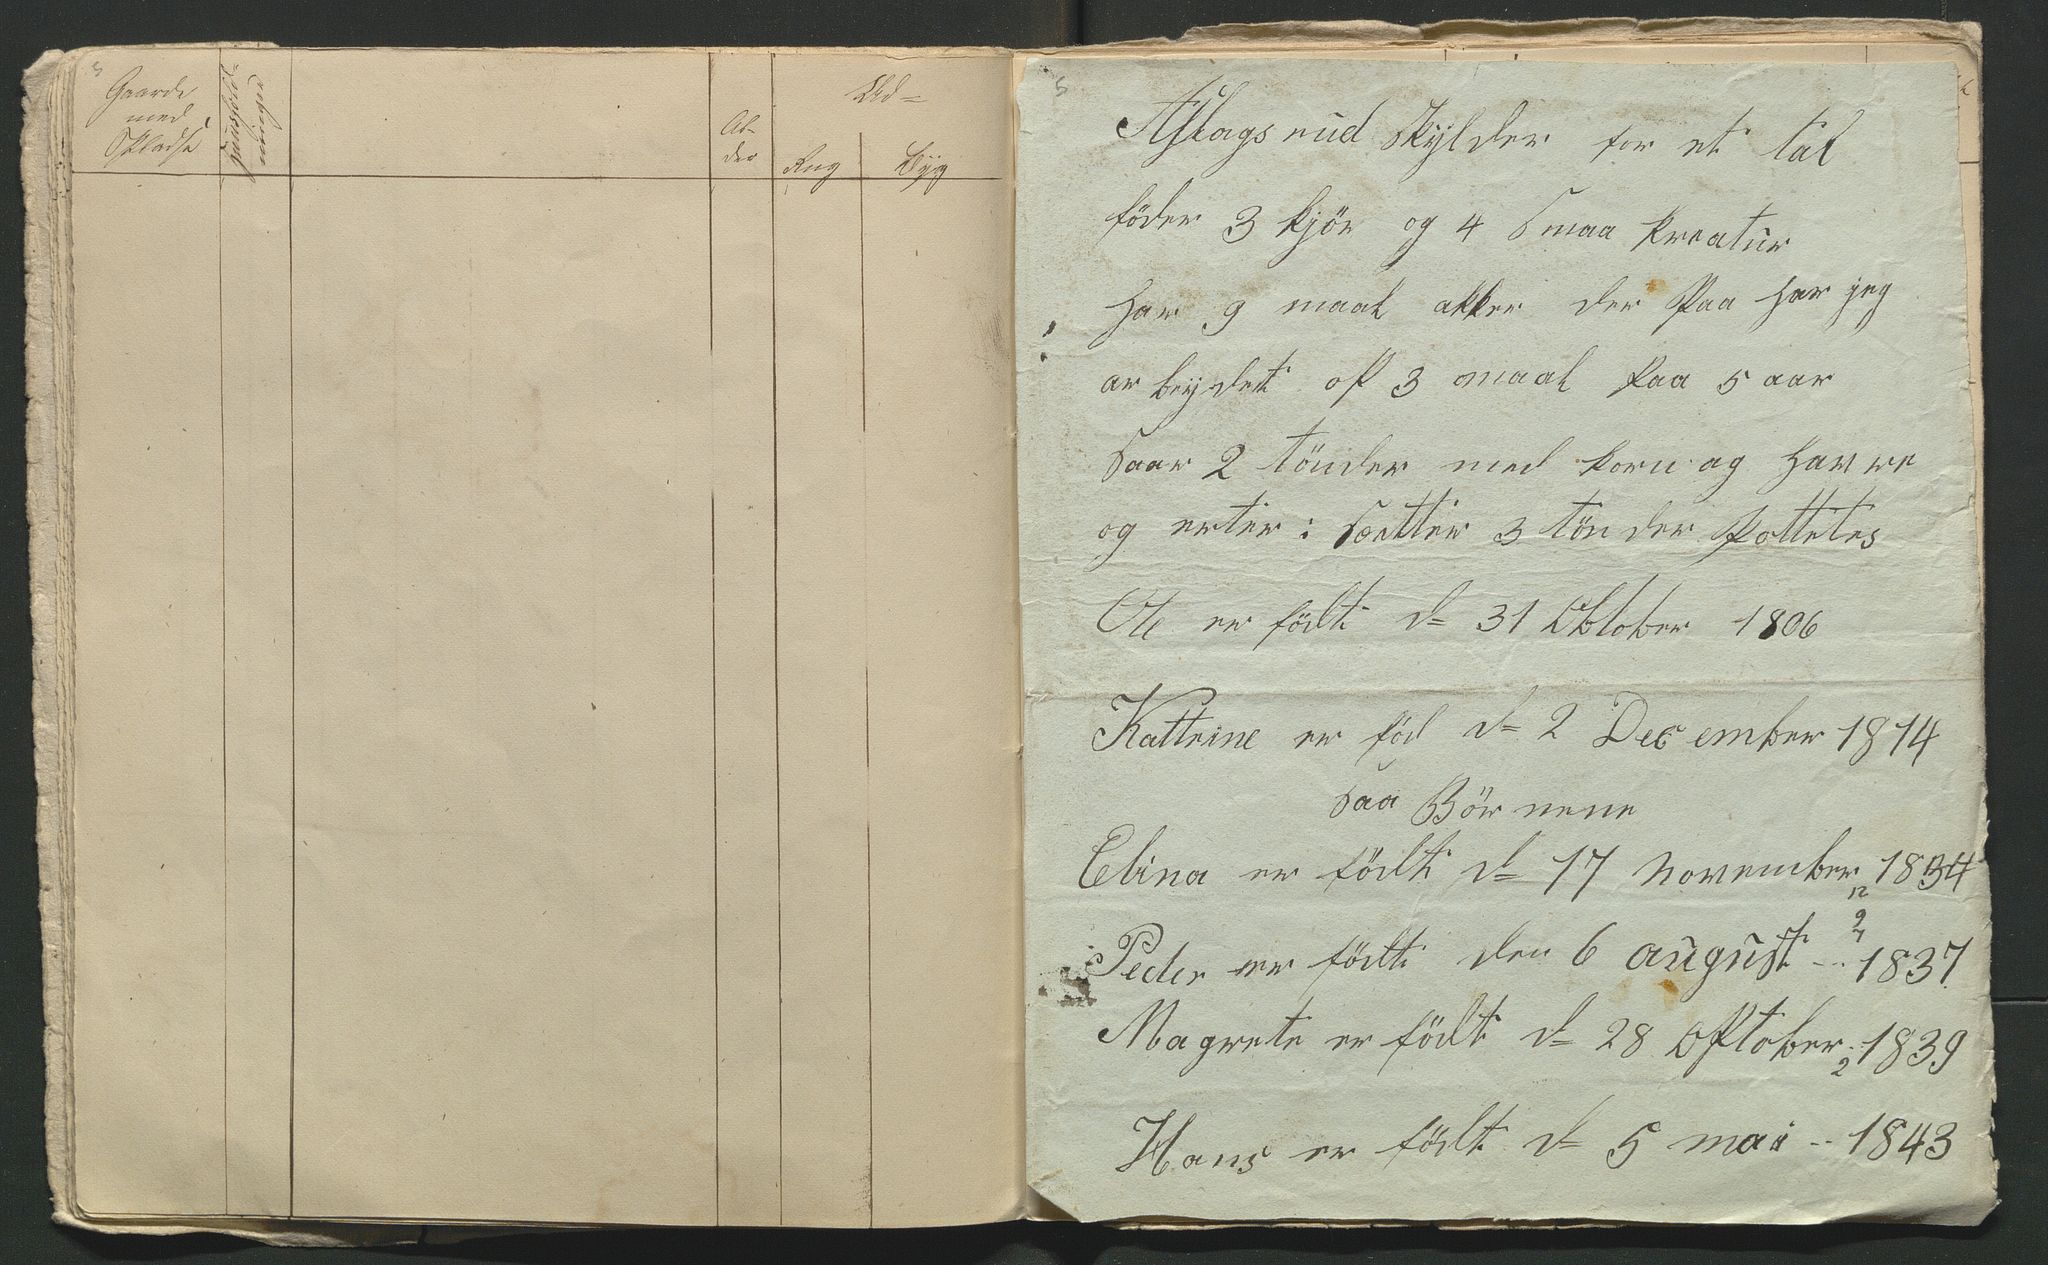 5
Gaarde
med
Pladse
Huushold-
ninger
Al-
der
Ud=
Rug
Byg
5
Aslagsrud Skylder for et tal
föder 3 kjör og 4 Smaa kreatur
har 9 maal akker der Paa har jeg
ar beydet op 3 maal paa 5 aar
Saar 2 tönder med korn og havre
og erter : Sætter 3 tönder Pottetes
Ole er födt d= 31 Oktober 1806
Kattrine er föd d= 2 December 1814
Saa Börnene
Elina er födt d= 17 november 1834
12
9
7
Peder er födt den 6 august -- 1837
Magrete er födt d= 28 Oktober - 1839
2
Hans er födt d= 5 mai -- 1843